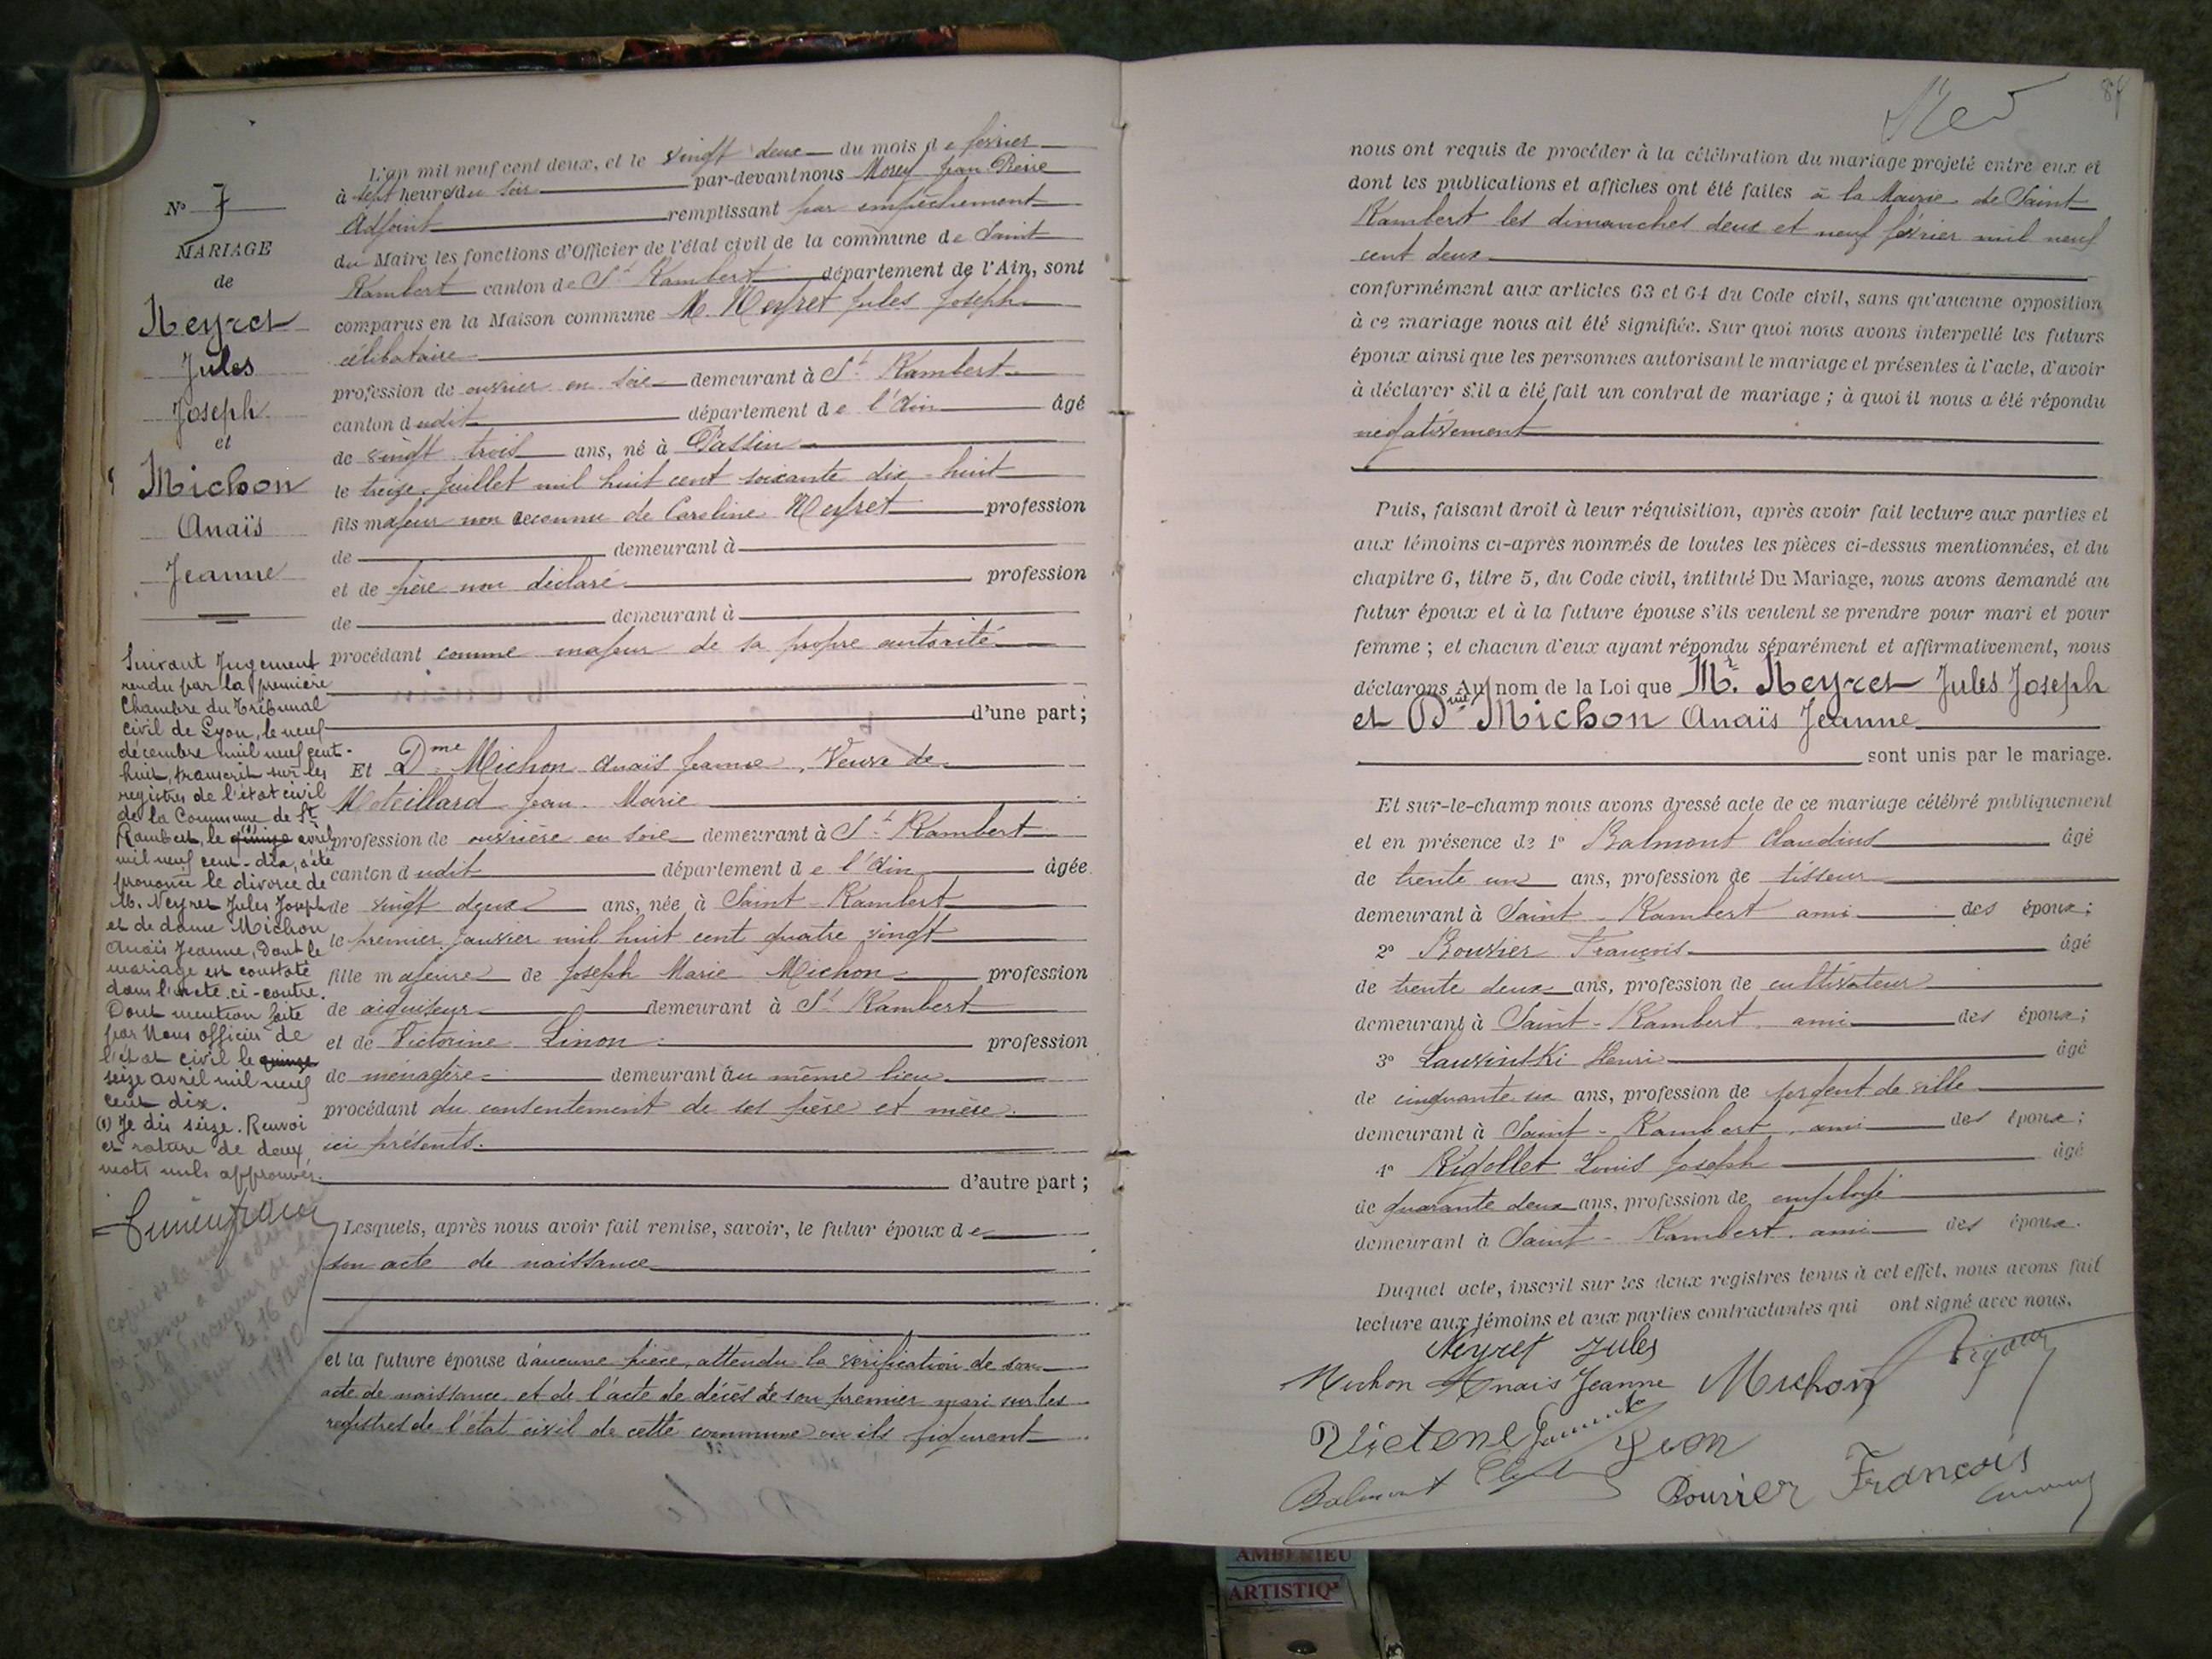 N° 7
MARIAGE
de
Neyret
Jules
Joseph
et
Michon
Anaïs
Jeanne
Suivant Jugement
rendu par la première
Chambre du Tribunal
civil de Lyon, le neuf
décembre mil neuf cent
huit, transcrit sur les
registres de l'état civil
de la Commune de St
Rambert, le quinze (1) avril
mil neuf cent-dix, a été
prononcé le divorce de
M. Neyret Jules Joseph
et de dame Michon
Anaïs Jeanne, dont le
mariage est constaté
dans l'acte ci-contre.
Dont mention faite
par Nous officier de
l'état civil le quinze
seize avril mil neuf
cent dix.
(1) Je dis seize. Renvoi
et rature de deux
mots nuls approuvés.
copie de la
a été
procureur de la
le 16 avril
1910
L'an mil neuf cent deux, et le vingt deux du mois de février
à sept heures du soir par-devant nous Morey Jean Pierre
Adjoint remplissant par empêchement
du Maire les fonctions d'Officier de l'état civil de la commune de Saint
Rambert canton de St Rambert département de l'Ain, sont
comparus en la Maison commune M. Neyret Jules Joseph
célibataire
profession de ouvrier en soie demeurant à St Rambert
canton dudit département de l'Ain âgé
de vingt trois ans, né à Passin
le treize Juillet mil huit cent soixante dix-huit
fils majeur non reconnu de Caroline Neyret profession
de demeurant à
et de père non déclaré profession
de demeurant à
procédant comme majeur de sa propre autorité
d'une part;
Et Dme Michon Anaïs Jeanne, Veuve de
Moteillard Jean Marie
profession de ouvrière en soie demeurant à St Rambert
canton dudit département de l'Ain âgée
de vingt deux ans, née à Saint-Rambert
le premier Janvier mil huit cent quatre vingt
fille majeure de Joseph Marie Michon profession
de aiguiseur demeurant à St Rambert
et de Victorine Linon profession
de ménagère demeurant au même lieu
procédant du consentement de ses père et mère
ici présents.
d'autre part;
Lesquels, après nous avoir fait remise, savoir, le futur époux de
son acte de naissance
et la future épouse d'aucune pièce, attendu la vérification de son
acte de naissance et de l'acte de décès de son premier mari sur les
registres de l'état civil de cette commune où ils figurent
84
nous ont requis de procéder à la célébration du mariage projeté entre eux et
dont les publications et affiches ont été faites à la Mairie de Saint
Rambert les dimanches deux et neuf février mil neuf
cent deux
conformément aux articles 63 et 64 du Code civil, sans qu'aucune opposition
à ce mariage nous ait été signifiée. Sur quoi nous avons interpellé les futurs
époux ainsi que les personnes autorisant le mariage et présentes à l'acte, d'avoir
à déclarer s'il a été fait un contrat de mariage; à quoi il nous a été répondu
négativement
Puis, faisant droit à leur réquisition, après avoir fait lecture aux parties et
aux témoins ci-après nommés de toutes les pièces ci-dessus mentionnées, et du
chapitre 6, titre 5, du Code civil, intitulé Du Mariage, nous avons demandé au
futur époux et à la future épouse s'ils veulent se prendre pour mari et pour
femme; et chacun d'eux ayant répondu séparément et affirmativement, nous
déclarons Au nom de la Loi que Mr. Neyret Jules Joseph
et Dme Michon Anaïs Jeanne
sont unis par le mariage.
Et sur-le-champ nous avons dressé acte de ce mariage célébré publiquement
et en présence de 1° Balmont Claudius âgé
de trente un ans, profession de tisseur
demeurant à Saint-Rambert ami des époux;
2° Bouvier François âgé
de trente deux ans, profession de cultivateur
demeurant à Saint-Rambert ami des époux;
3° Lauvinski Henri âgé
de cinquante six ans, profession de sergent de ville
demeurant à Saint-Rambert, ami des époux;
4° Rigollet Louis Joseph âgé
de quarante deux ans, profession de employé
demeurant à Saint-Rambert, ami des époux.
Duquel acte, inscrit sur les deux registres tenus à cet effet, nous avons fait
lecture aux témoins et aux parties contractantes qui ont signé avec nous.
Neyret Jules
Michon Anais Jeanne Michon
Balmont
Bouvier François
AMBERIEU
ARTISTIQ